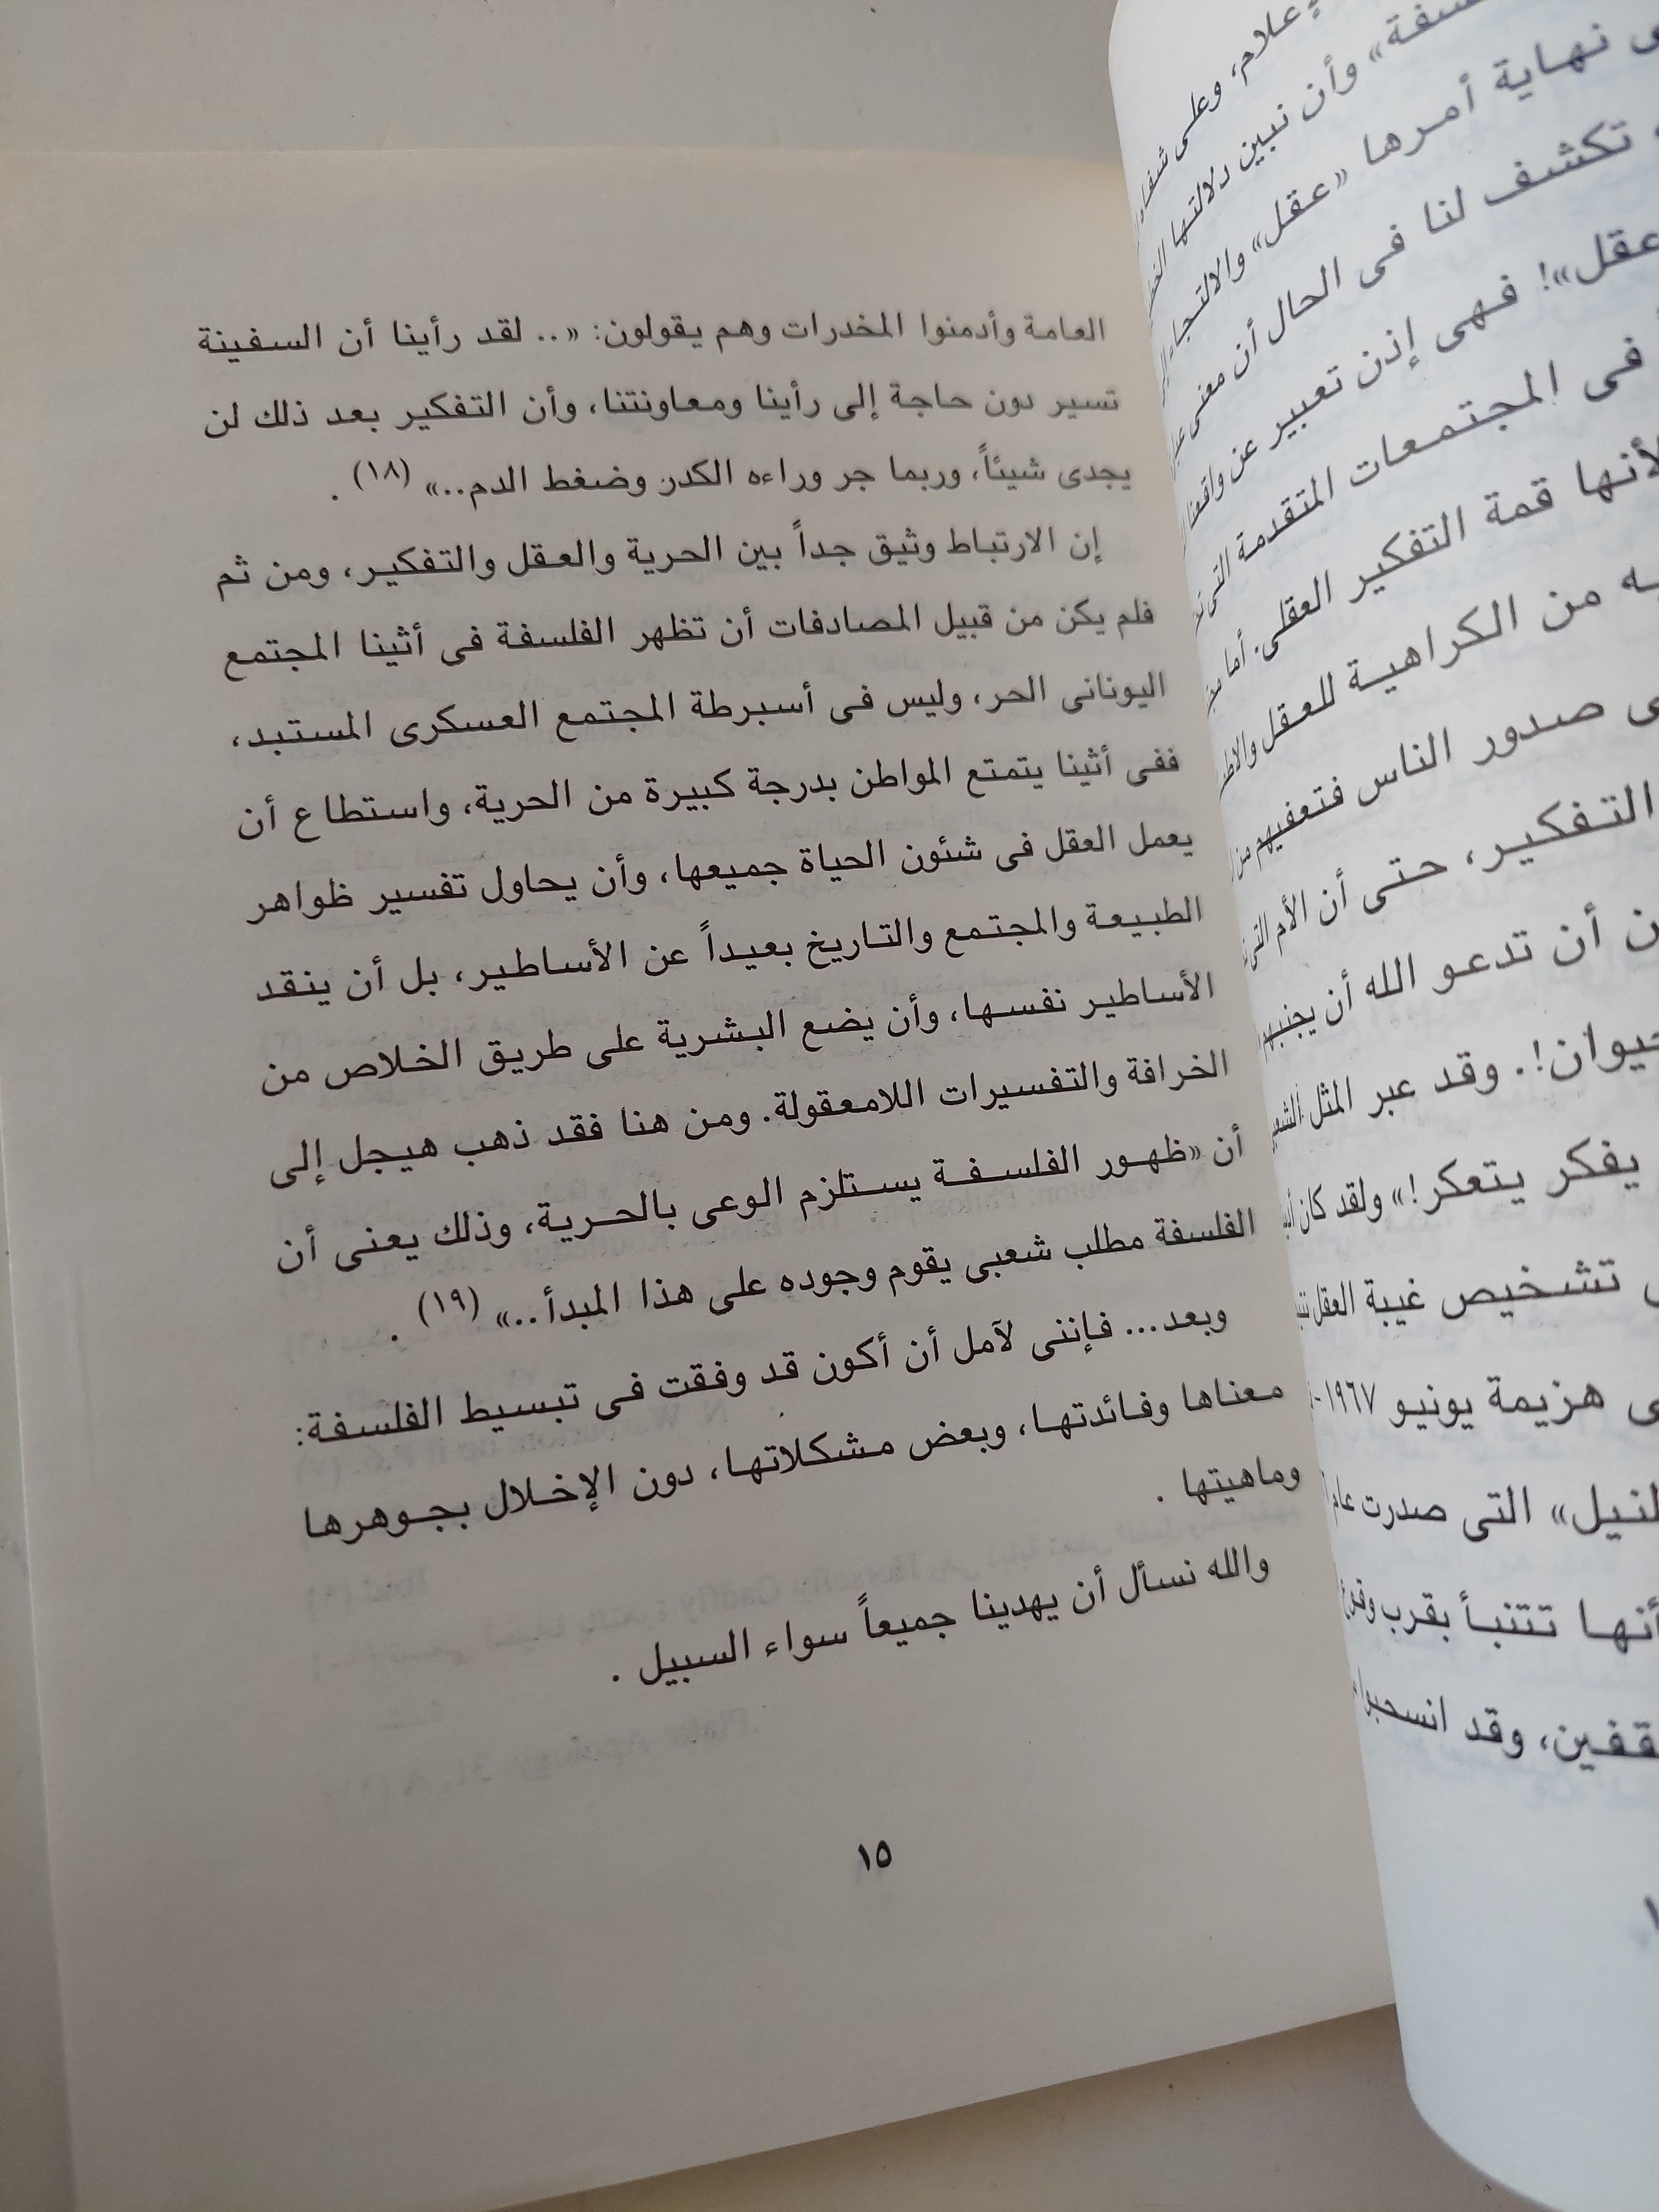 إعلام، وعلى
وأن نبين دلالتها
نهاية أمرها «عقل» والالتجاء
تكشف لنا فى الحال أن معنى
عقل»! فهى إذن تعبير عن واقعنا
فى المجتمعات المتقدمة التى
لأنها قمة التفكير العقلى. أما
من الكراهية للعقل
صدور الناس فتعفيهم من
التفكير، حتى أن الأم التى
أن تدعو الله أن يجنبها
حيوان!. وقد عبر المثل
يفكر يتعكر!» ولقد كان
تشخيص غيبة العقل
هزيمة يونيو ١٩٦٧-
النيل» التى صدرت عام
أنها تتنبأ بقرب وقوع
وقد انسحبوا
العامة وأدمنوا المخدرات وهم يقولون: «.. لقد رأينا أن السفينة
تسير دون حاجة إلى رأينا ومعاونتنا، وأن التفكير بعد ذلك لن
يجدى شيئاً، وربما جر وراءه الكدر وضغط الدم..» (١٨) .
إن الارتباط وثيق جداً بين الحرية والعقل والتفكير، ومن ثم
فلم يكن من قبيل المصادفات أن تظهر الفلسفة فى أثينا المجتمع
اليونانى الحر، وليس فى أسبرطة المجتمع العسكرى المستبد،
ففى أثينا يتمتع المواطن بدرجة كبيرة من الحرية، واستطاع أن
يعمل العقل فى شئون الحياة جميعها، وأن يحاول تفسير ظواهر
الطبيعة والمجتمع والتاريخ بعيداً عن الأساطير، بل أن ينقد
الأساطير نفسها، وأن يضع البشرية على طريق الخلاص من
الخرافة والتفسيرات اللامعقولة. ومن هنا فقد ذهب هيجل إلى
أن «ظهور الفلسفة يستلزم الوعى بالحرية، وذلك يعنى أن
الفلسفة مطلب شعبى يقوم وجوده على هذا المبدأ..» (١٩) .
وبعد... فإننى لآمل أن أكون قد وفقت فى تبسيط الفلسفة:
معناها وفائدتها، وبعض مشكلاتها، دون الإخلال بجوهرها
وماهيتها .
والله نسأل أن يهدينا جميعاً سواء السبيل .
١٥